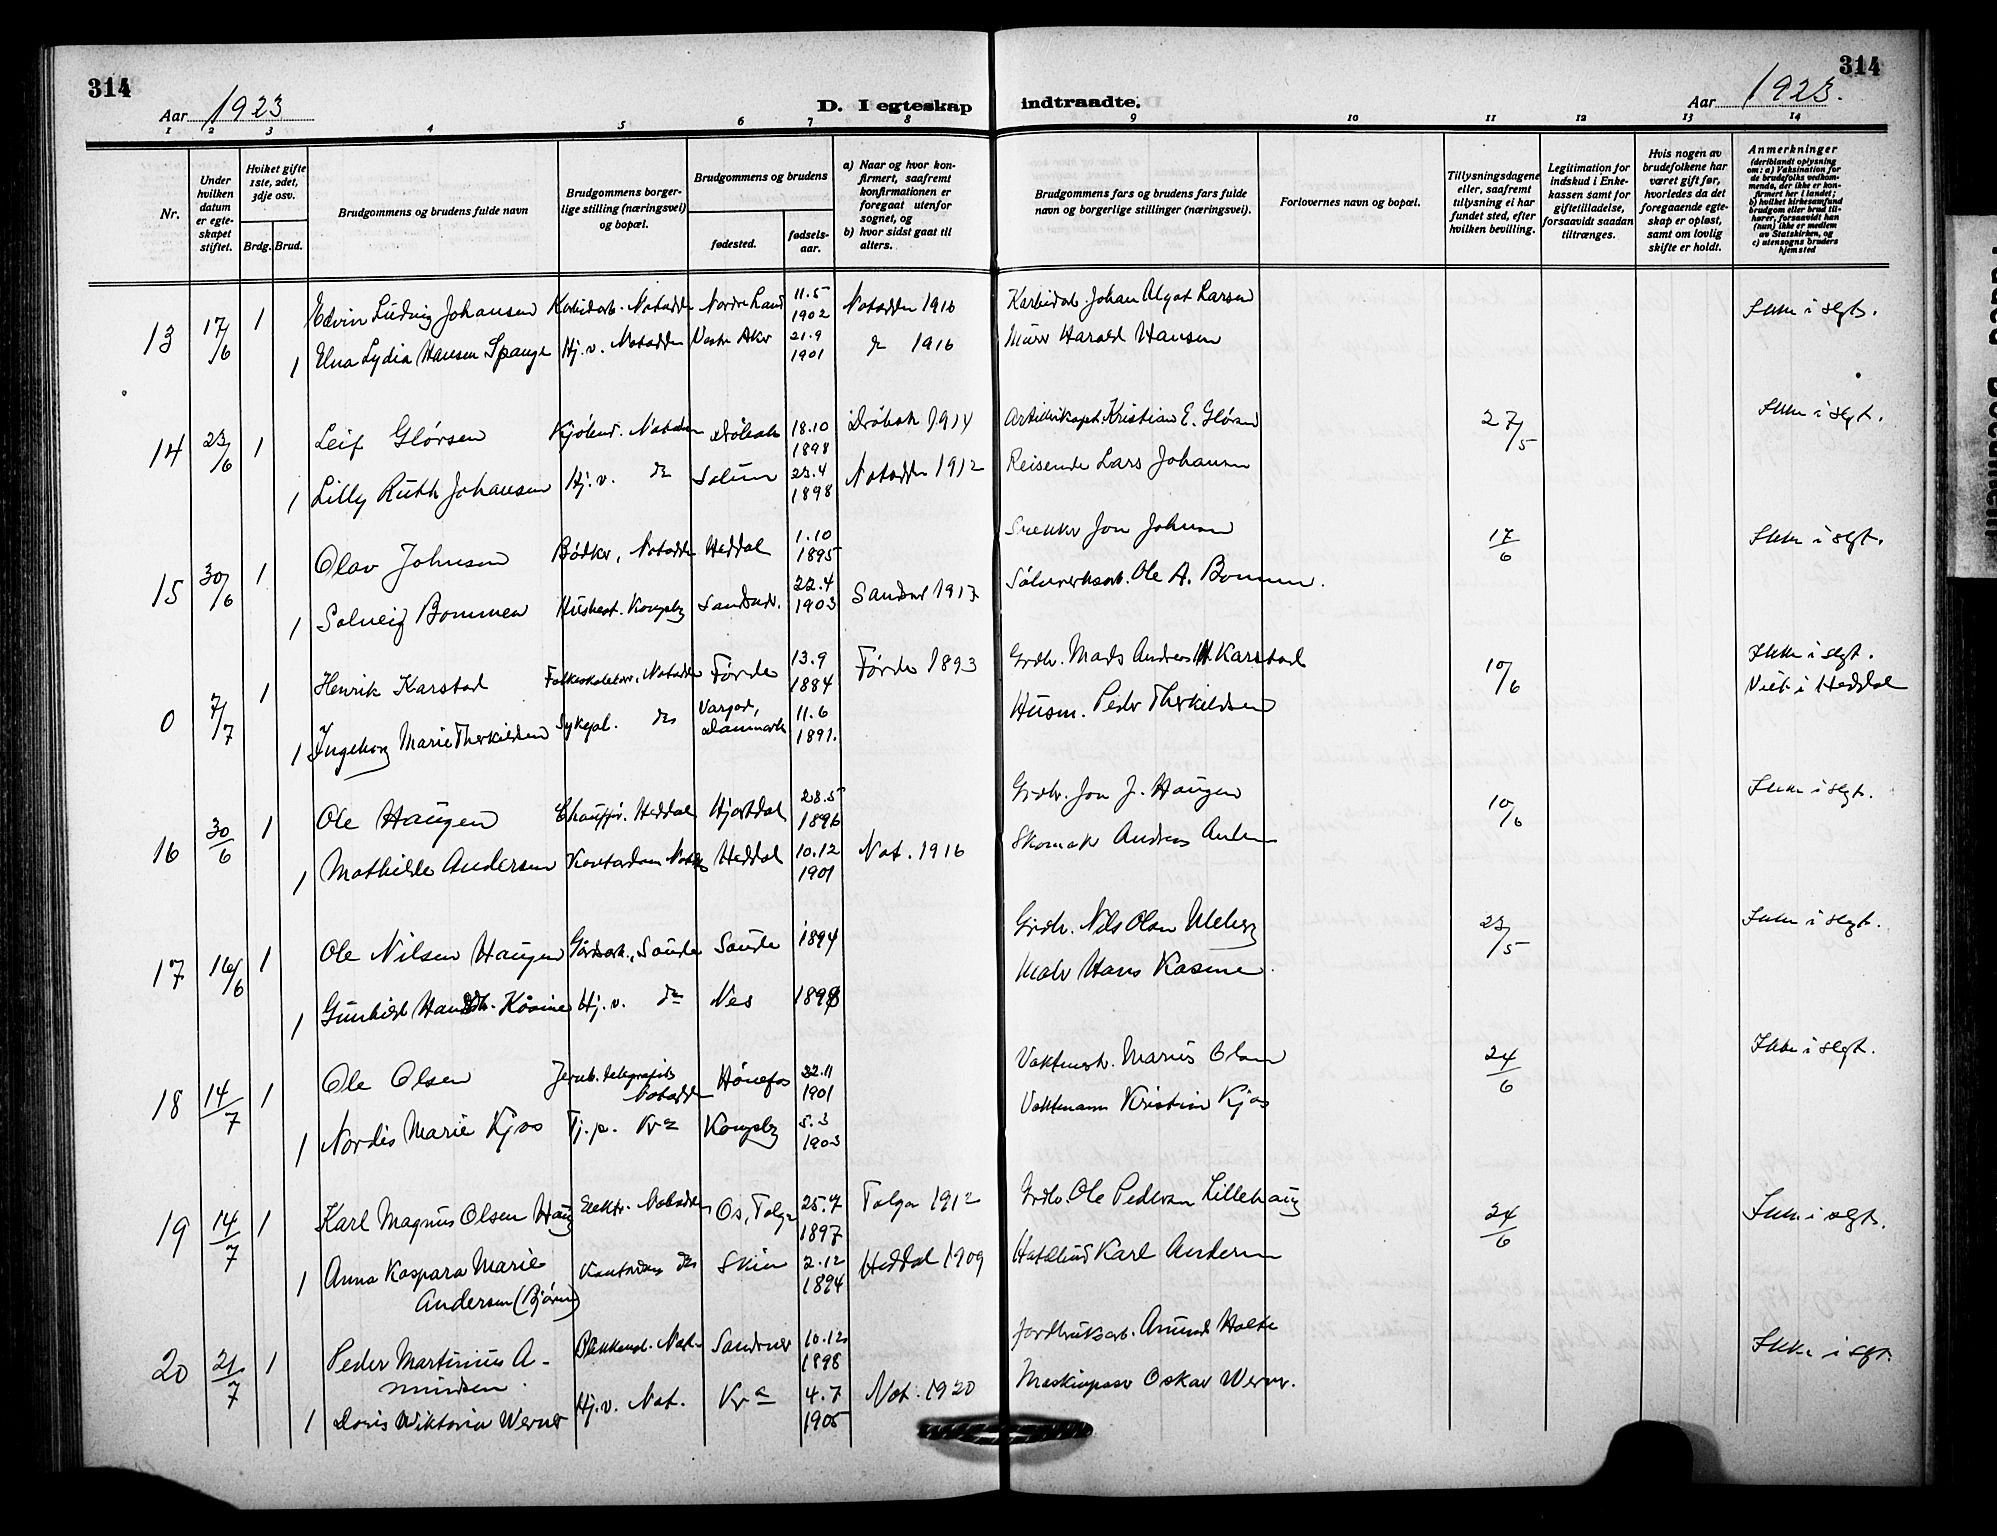 314
Aar 1923
D. I egteskap
indtraadte.
Aar 1923.
314
1 2 3 4 5 6 7 8 9 10 11 12 13 14
Nr.
Under hvilken datum er egteskapet stiftet.
Hviket gifte 1ste, 2det, 3dje osv.
Brdg. Brud.
Brudgommens og brudens fulde navn
Brudgommens borgerlige stilling (næringsvei) og bopæl.
Brudgommens og brudens
fødested.
fødselsaar.
a) Naar og hvor konfirmert, saafremt konfirmationen er foregaaet utenfor sognet, og
b) hvor sidst gaat til alters.
Brudgommens fars og brudens fars fulde navn og borgerlige stillinger (næringsvei).
Forlovernes navn og bopæl.
Tillysningsdagene eller, saafremt tillysning ei har fundet sted, efter hvilken bevilling.
Legitimation for indskud i Enkekassen samt for giftetilladelse, forsaavidt saadan tiltrænges.
Hvis nogen av brudefolkene har været gift før, hvorledes da det foregaaende egteskap er opløst, samt om lovlig skifte er holdt.
Anmerkninger
(deriblandt oplysning om: a) Vaksination for de brudefolks vedkommende, der ikke er konfirmert her i landet; b) hvilket kirkesamfund brudgom eller brud tilhører, forsaavidt han (hun) ikke er medlem av Statskirken, og c) utensogns bruders hjemsted
13 17/6 1 Edvin Ludvig Johansen Karbidarb. Notodden Nordre Land 11.5 1902 Notodden 1916 Karbidarb. Johan Algot Larsen Ikke i slgt.
1 Elna Lydia Hansen Spange Hj.v. Notodden Vestre Aker 21.9 1901 do 1916 Murer Harald Hansen
14 23/6 1 Leif Glørsen Notodden Drøbak 18.10 1898 Drøbak 1914 Kristian E. Glørsen 27/5 Ikke i slgt.
1 Lilly Ruth Johansen Hj.v. do Solum 23.4 1898 Notodden 1912 Reisende Lars Johansen
15 30/6 1 Olav Johnsen Bødker, Notodden Heddal 1.10 1895 Snekker Jon Johnsen 17/6 Ikke i slgt.
1 Solveig Bommen Husbest. Kongsbg Sandsvr. 22.4 1903 Sandsvr 1917 Sølvverksarb. Ole A. Bommen.
0 7/7 1 Henrik Karstad Notodden Førde 13.9 1884 Førde 1893 Grdbr. Mads Andreas Karstad 10/6 Ikke i slgt.
Viet i Heddal
1 Ingeborg Marie Therkildsen Sykepl. do Danmark 11.6 1891. Husm. Peder Therkildsen
16 30/6 1 Ole Haugen Chauffør. Heddal Hjartdal 28.5 1896 Grdbr. Jon J. Haugen 10/6 Ikke i slgt.
1 Mathilde Andersen Kontordam Heddal 10.12 1901 Not. 1916 Skomak Andreas
17 16/6 1 Ole Nilsen Haugen Gårdsarb., Saude Saude 1894 Grdbr. Nils Olsen Uleberg 23/5 Ikke i slgt.
1 Gunhild Kåsine Hj.v. do Nes Maler Hans Kasine.
18 14/7 1 Ole Olsen Jernb. telegrafist Notodden Hønefos 22.11 1901 Vaktmstr. Marius Olsen 24/6 Ikke i slgt.
1 Nordis Marie Kjos Tj.p. Kra Kongsbg 5.3 1903 Vaktmann Kristian Kjos
19 14/7 1 Karl Magnus Olsen Haug Elektr. Notodden Os, Tolga 25.7 1897 Tolga 1912 Grdbr. Ole Pedersen Lillehaug 24/6 Ikke i slgt.
1 Anna Kaspara Marie Andersen (Bjørn) Kontordam do Skien 2.12 1894 Heddal 1909 Karl Andersen
20 21/7 1 Peder Martinius Amundsen. Not. Sandsver 10.12 1898 Jordbruksarb. Amund Holte Ikke i slgt.
1 Doris Wiktoria Werner Hj.v. Not. Kra 4.7 1905 Not. 1920 Maskinpasser Oskar Werner.